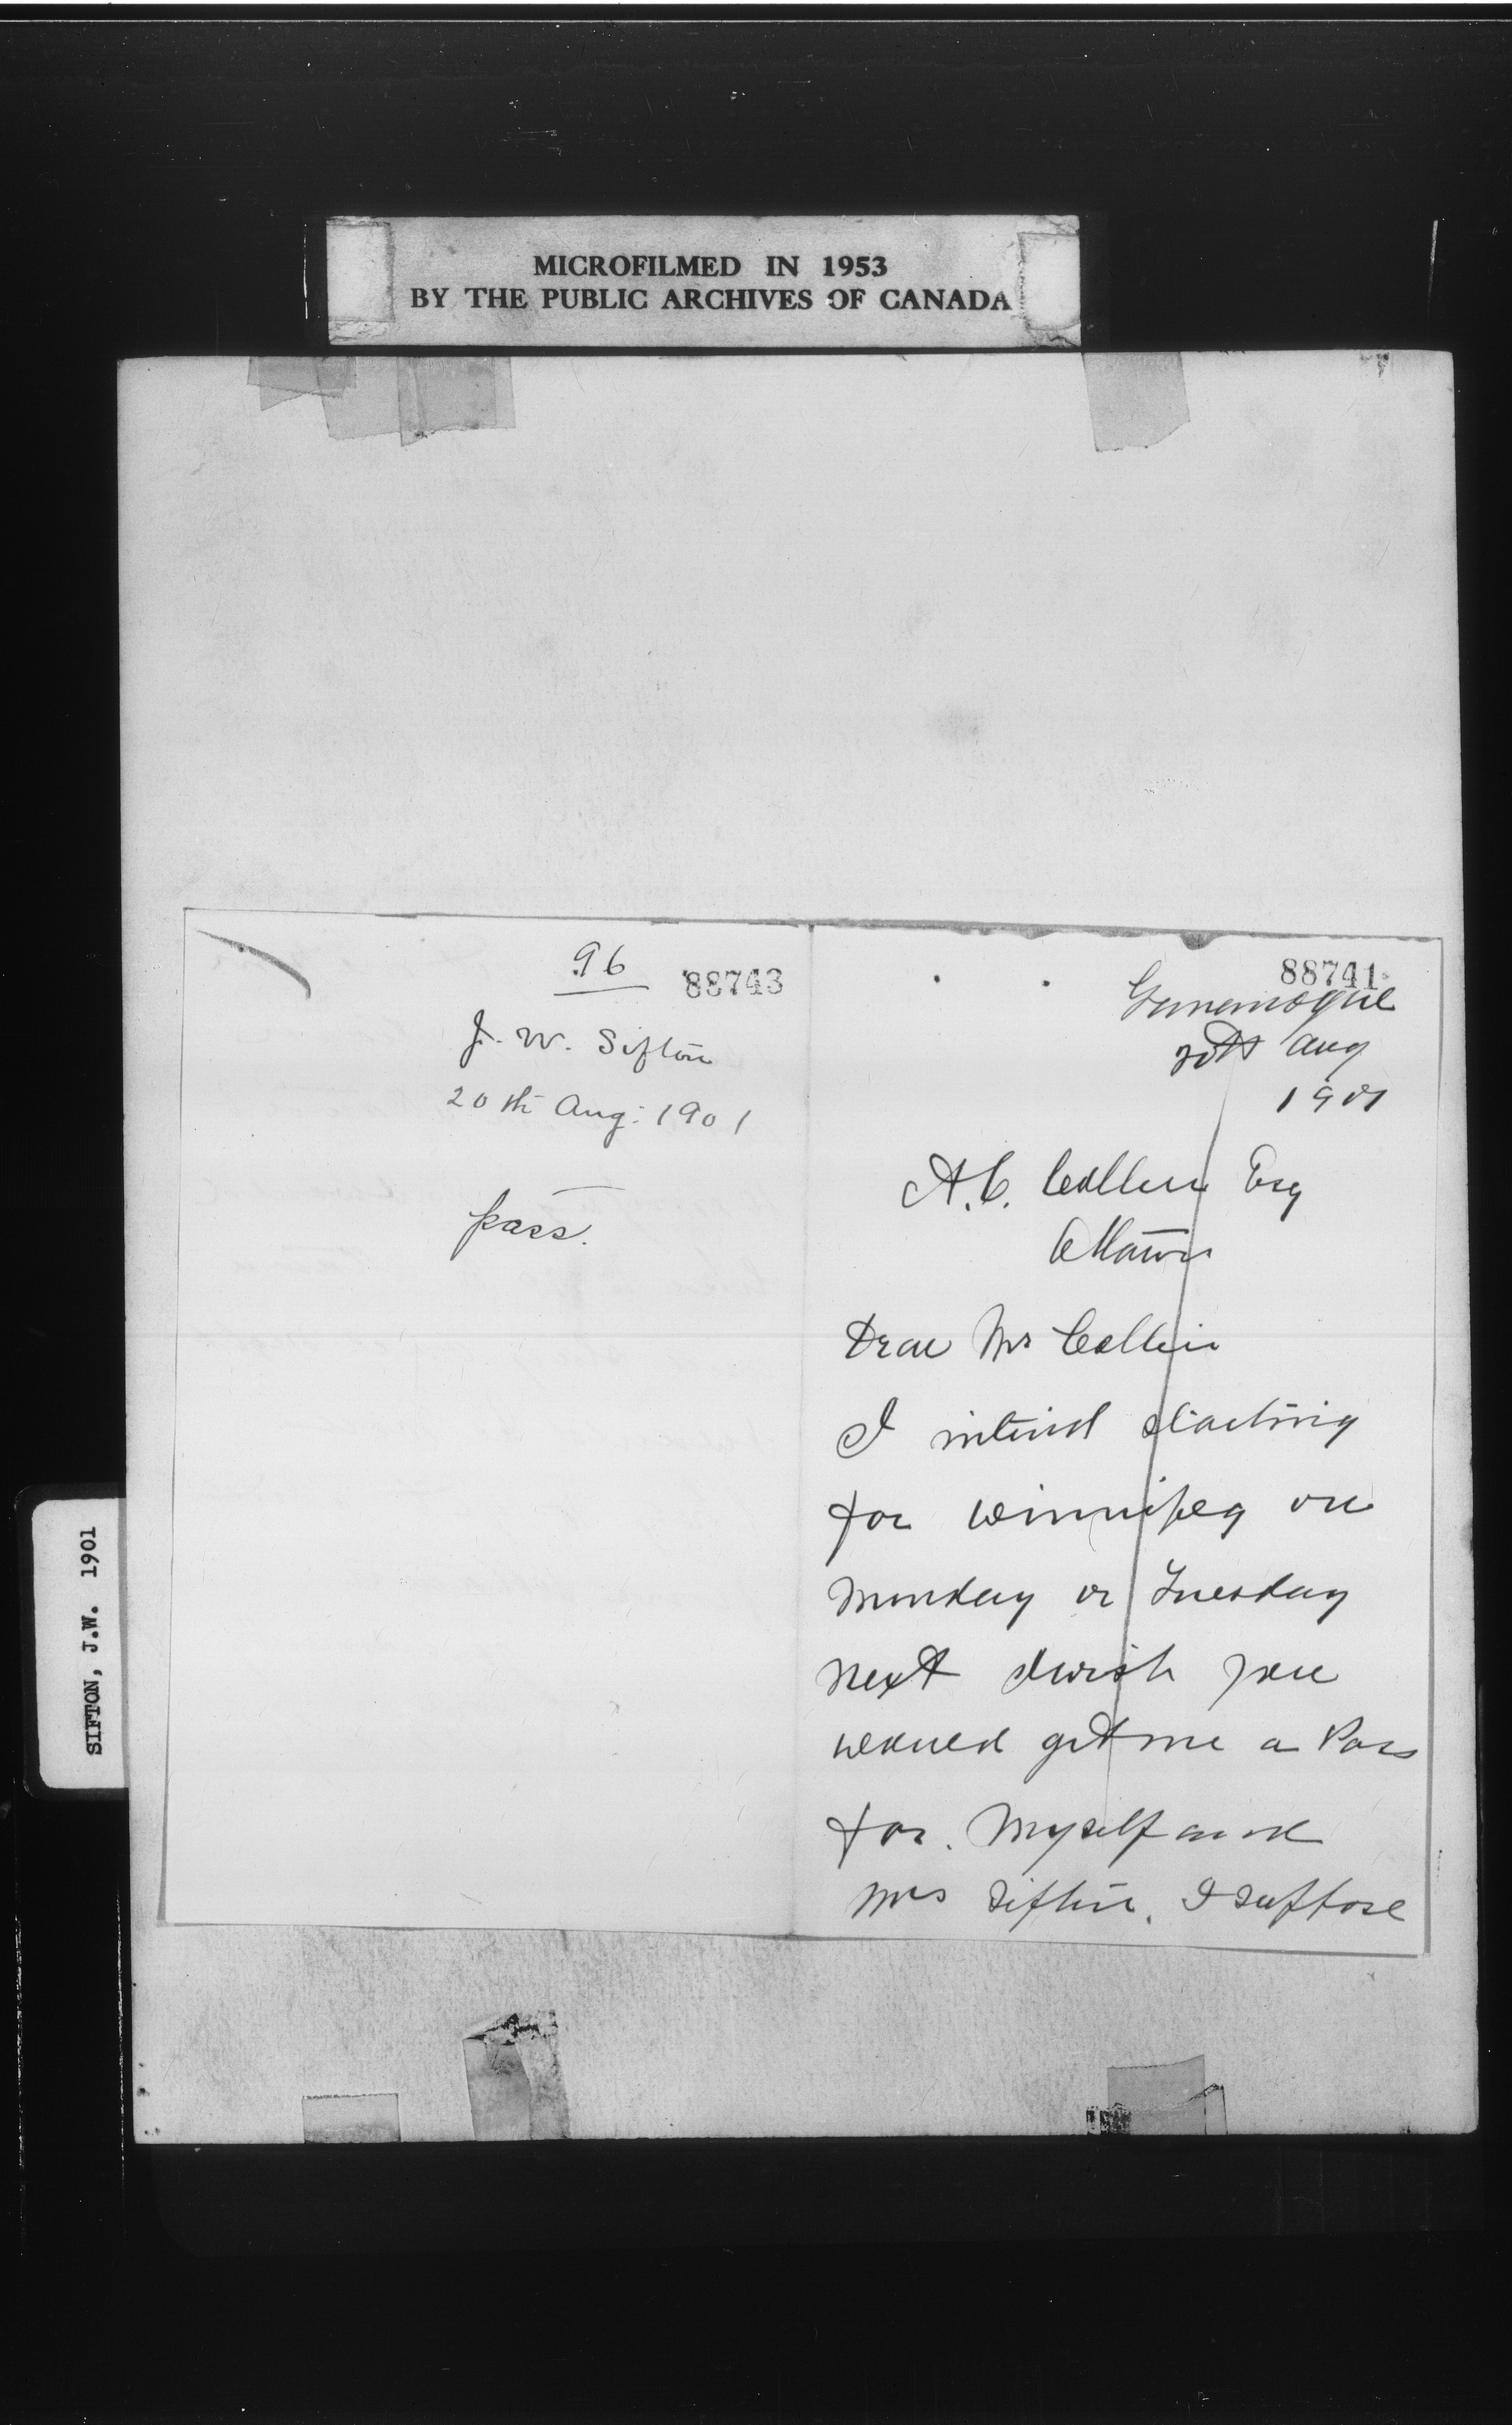 MICROFILMED IN 1953
BY THE PUBLIC ARCHIVES OF CANADA
SIFTON, J.W. 1901
96
88743
J. W. Sifton
20th Aug: 1901
pass.
88741
Gananoque
20th Aug
1901
A.C. Esq
Ottawa
Dear Mr
I intend starting
for Winnipeg on
Monday or Tuesday
next I wish you
would get me a Pass
for. Myself and
Mrs Sifton. I suppose